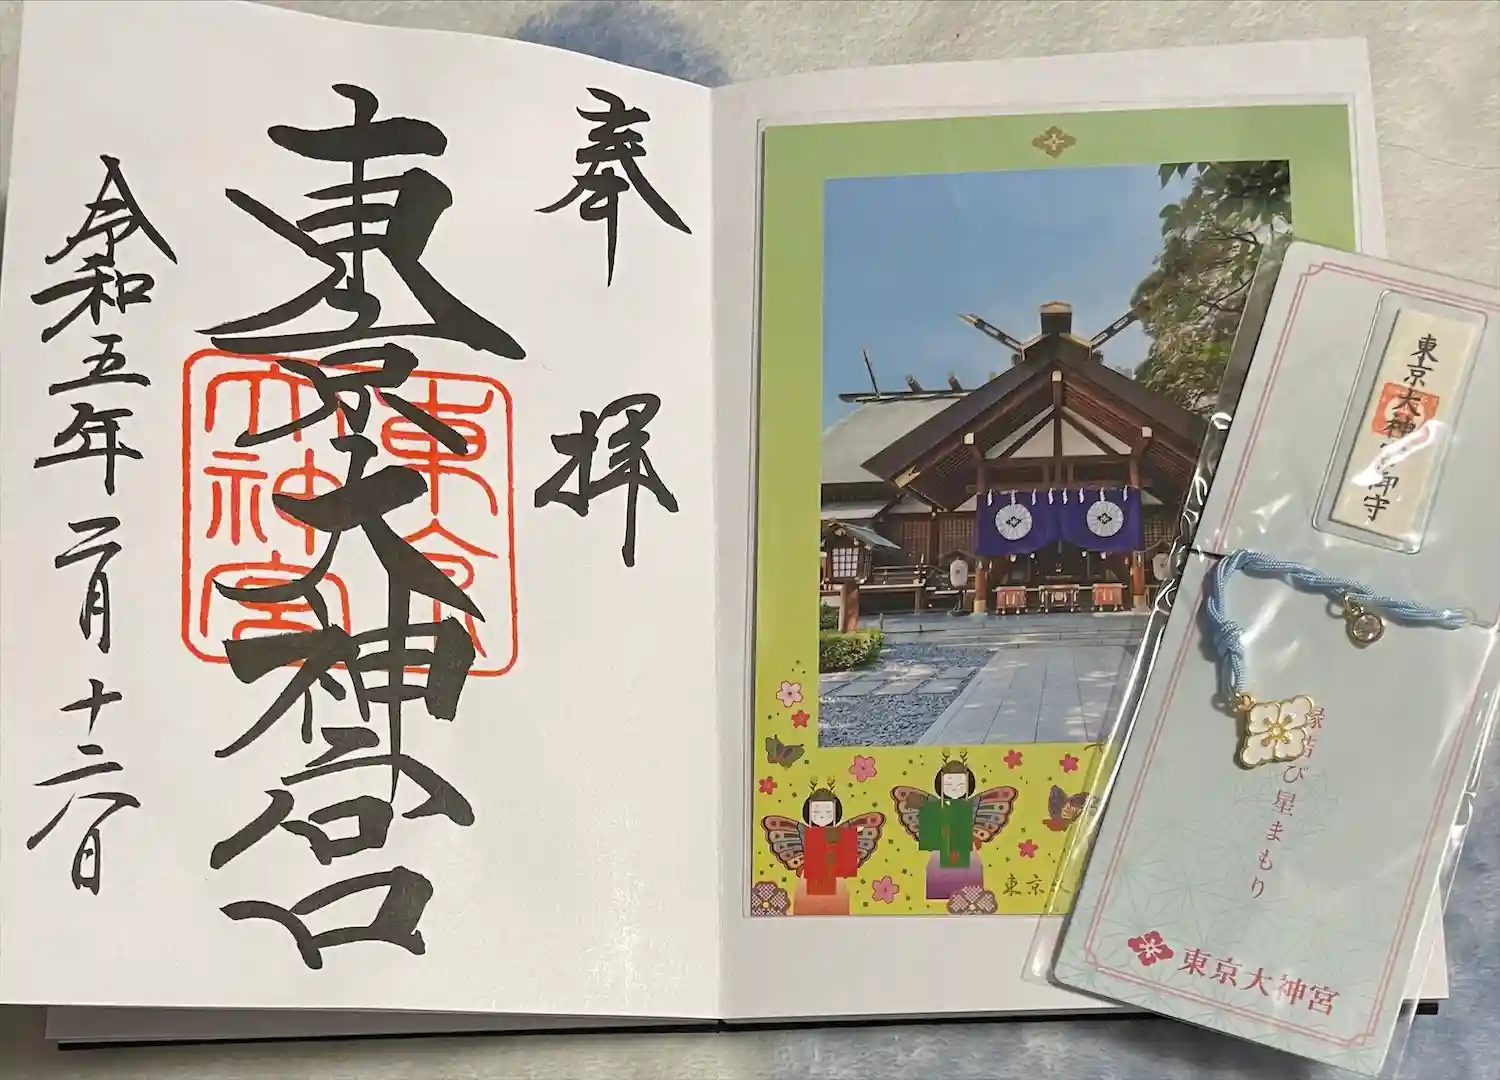 奉拝
東京大神宮
東京大神宮
令和五年二月十六日
東京大
東京大神宮御守
縁結び星まもり
東京大神宮